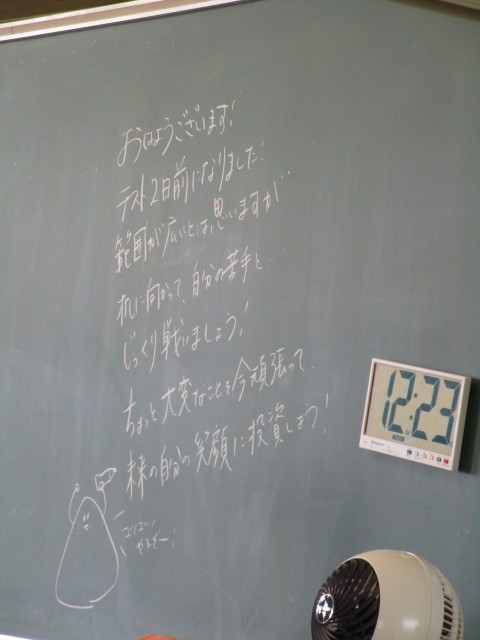 おはようございます!
テスト2日前になりました!
範囲が広いとは思いますが
机に向かって、自分の苦手と
じっくり戦いましょう!
ちょっと大変なことを今頑張って
未来の自分の笑顔に投資しよう!
やるぞー!
12:23